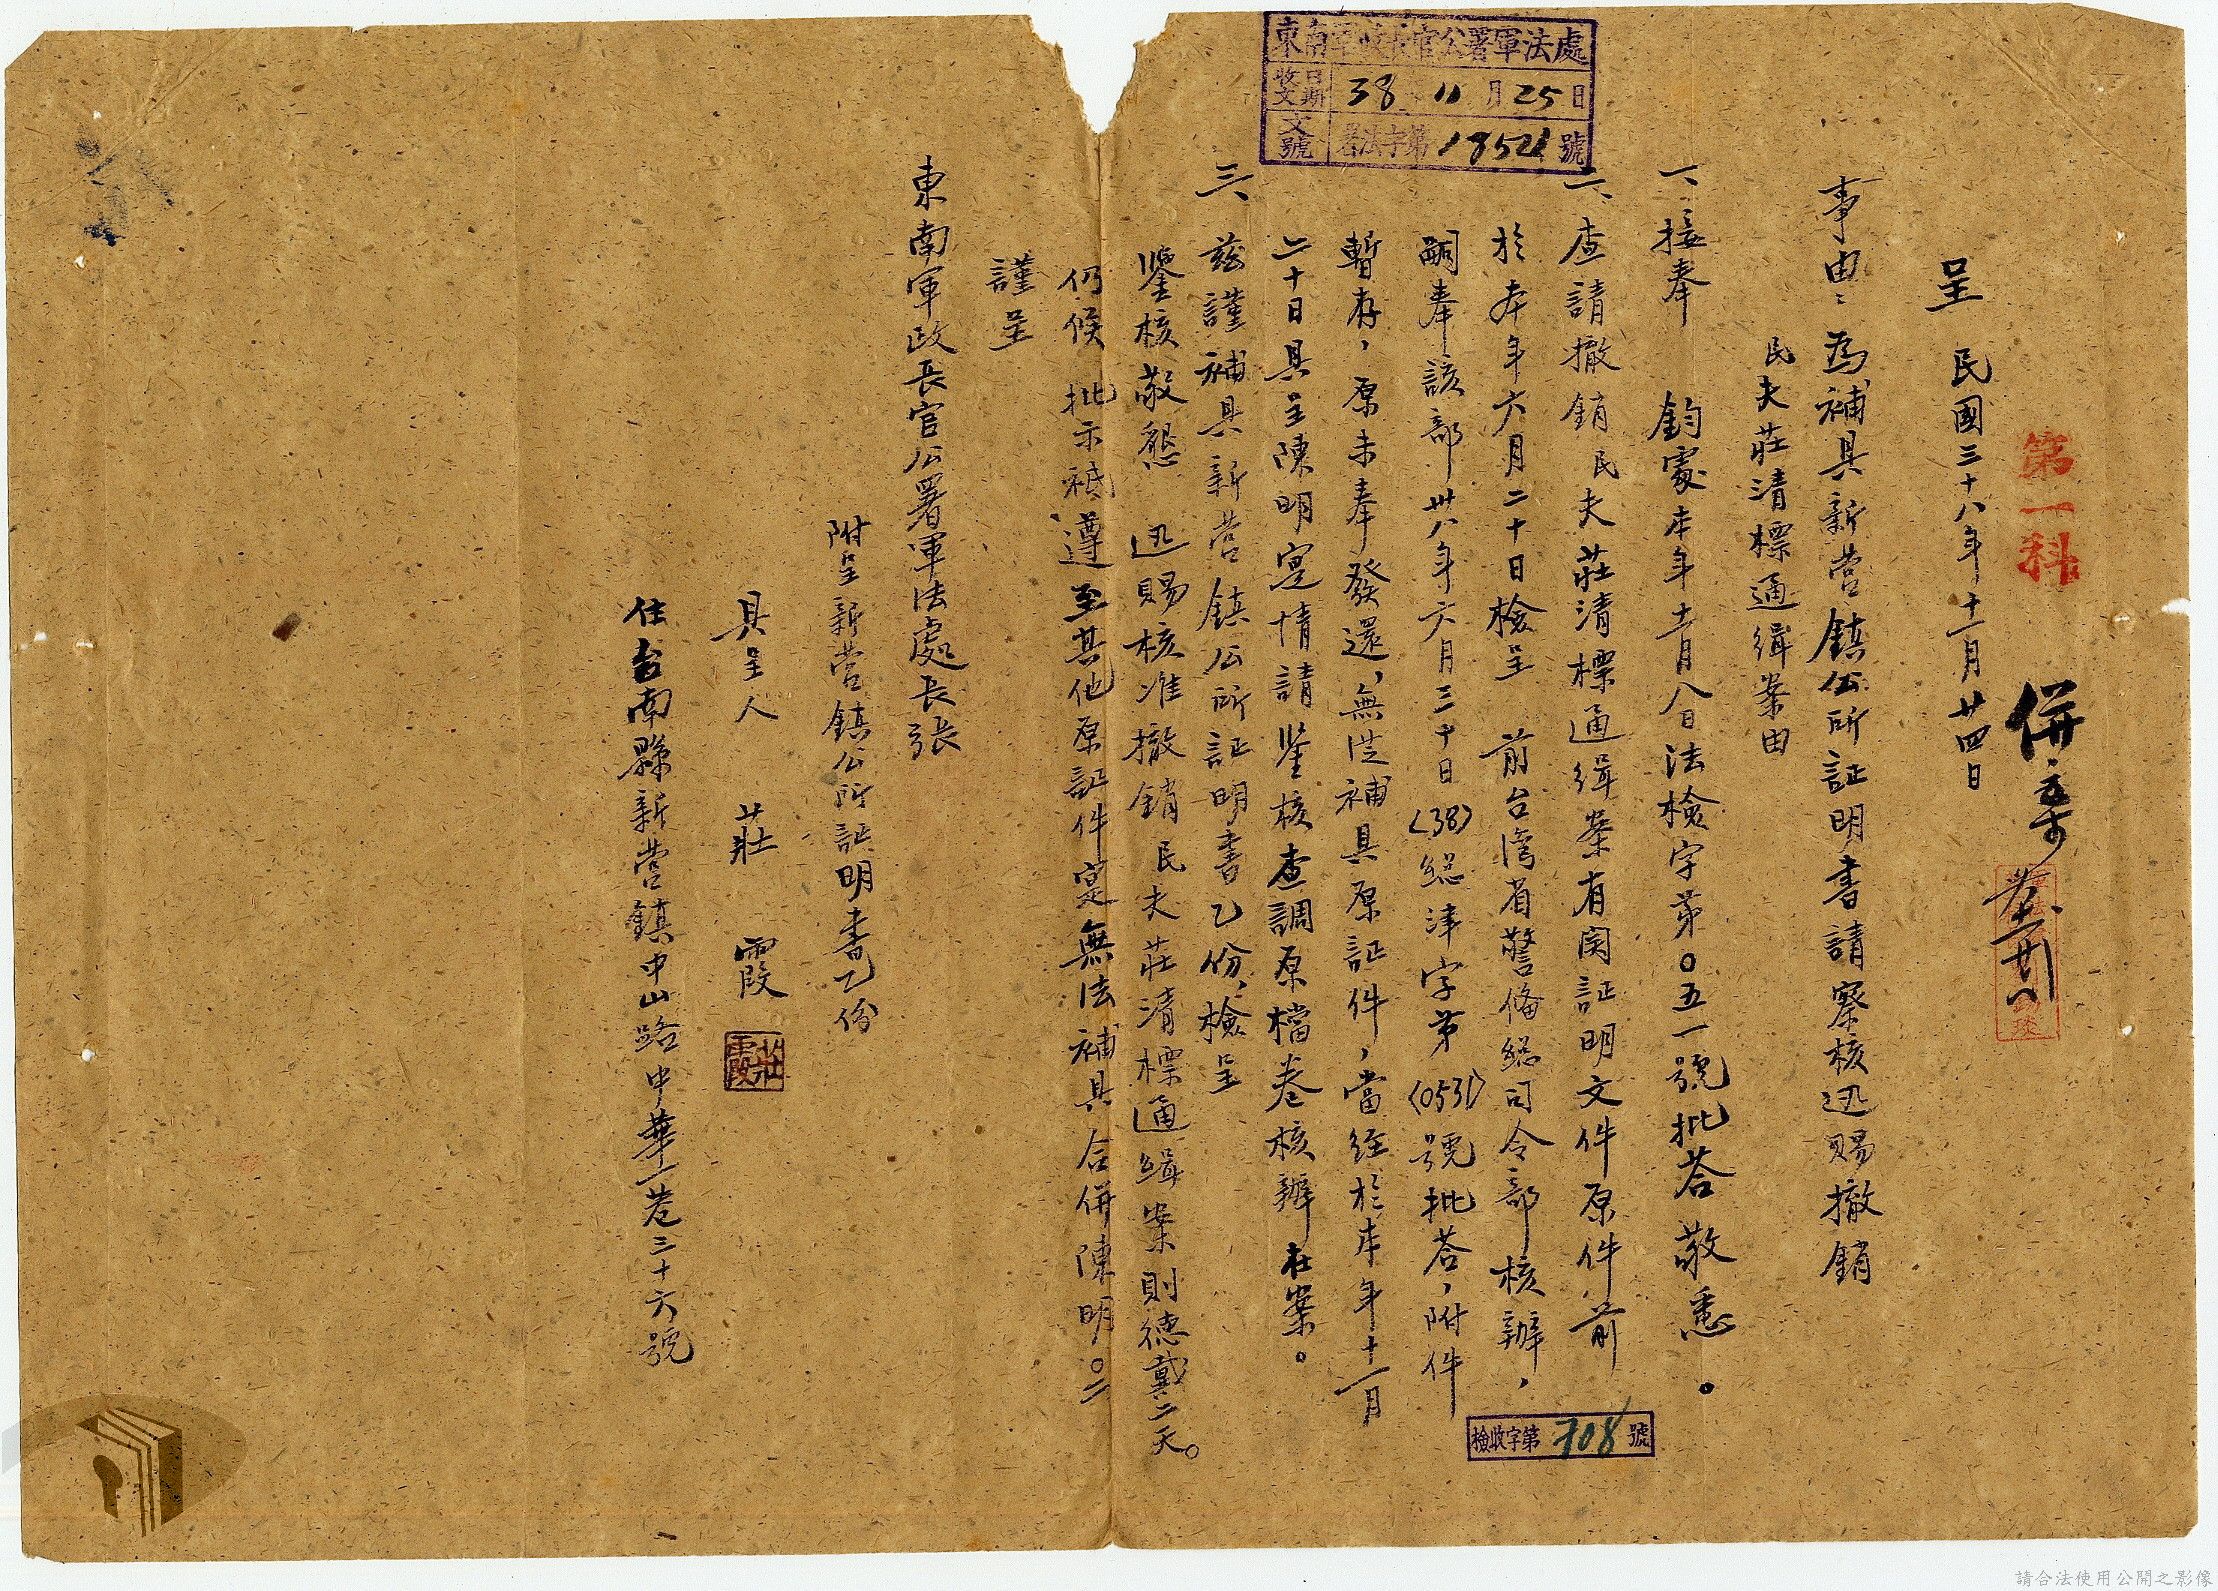 東南軍政長官公署軍法處
收文日期 38 11月25日
文號 署法字第18521號
第一科
呈 民國三十八年十一月廿四日
事由：為補具新营鎮公所証明書請察核迅賜撤銷
民夫莊清標通緝案由
一、接奉 鈞處本年十一月八日法檢字第0五一號批荅敬悉。
二、查請撤銷民夫莊清標通緝案有関証明文件原件前
於本年六月二十日檢呈 前台灣省警俻総司令部核辦，
嗣奉該部卅八年六月三十日(38)総津字第(0531)號批荅，附件
暫存，原未奉發還，無從補具原証件，當經於本年十一月
二十日具呈陳明寔情請鉴核查調原檔卷核辦在案。
三、茲謹補具新营鎮公所証明書乙份，檢呈
鉴核敬懇 迅賜核准撤銷民夫莊清標通緝案則德戴二天。
仍候 批示祗遵至其他原証件寔無法補具合併陳明。二
謹呈
東南軍政長官公署軍法處長張
附呈新营鎮公所証明書乙份
具呈人 莊霞
莊霞
住台南縣新营鎮中山路中華一巷三十六號
檢收字第708號
請合法使用公開之影像